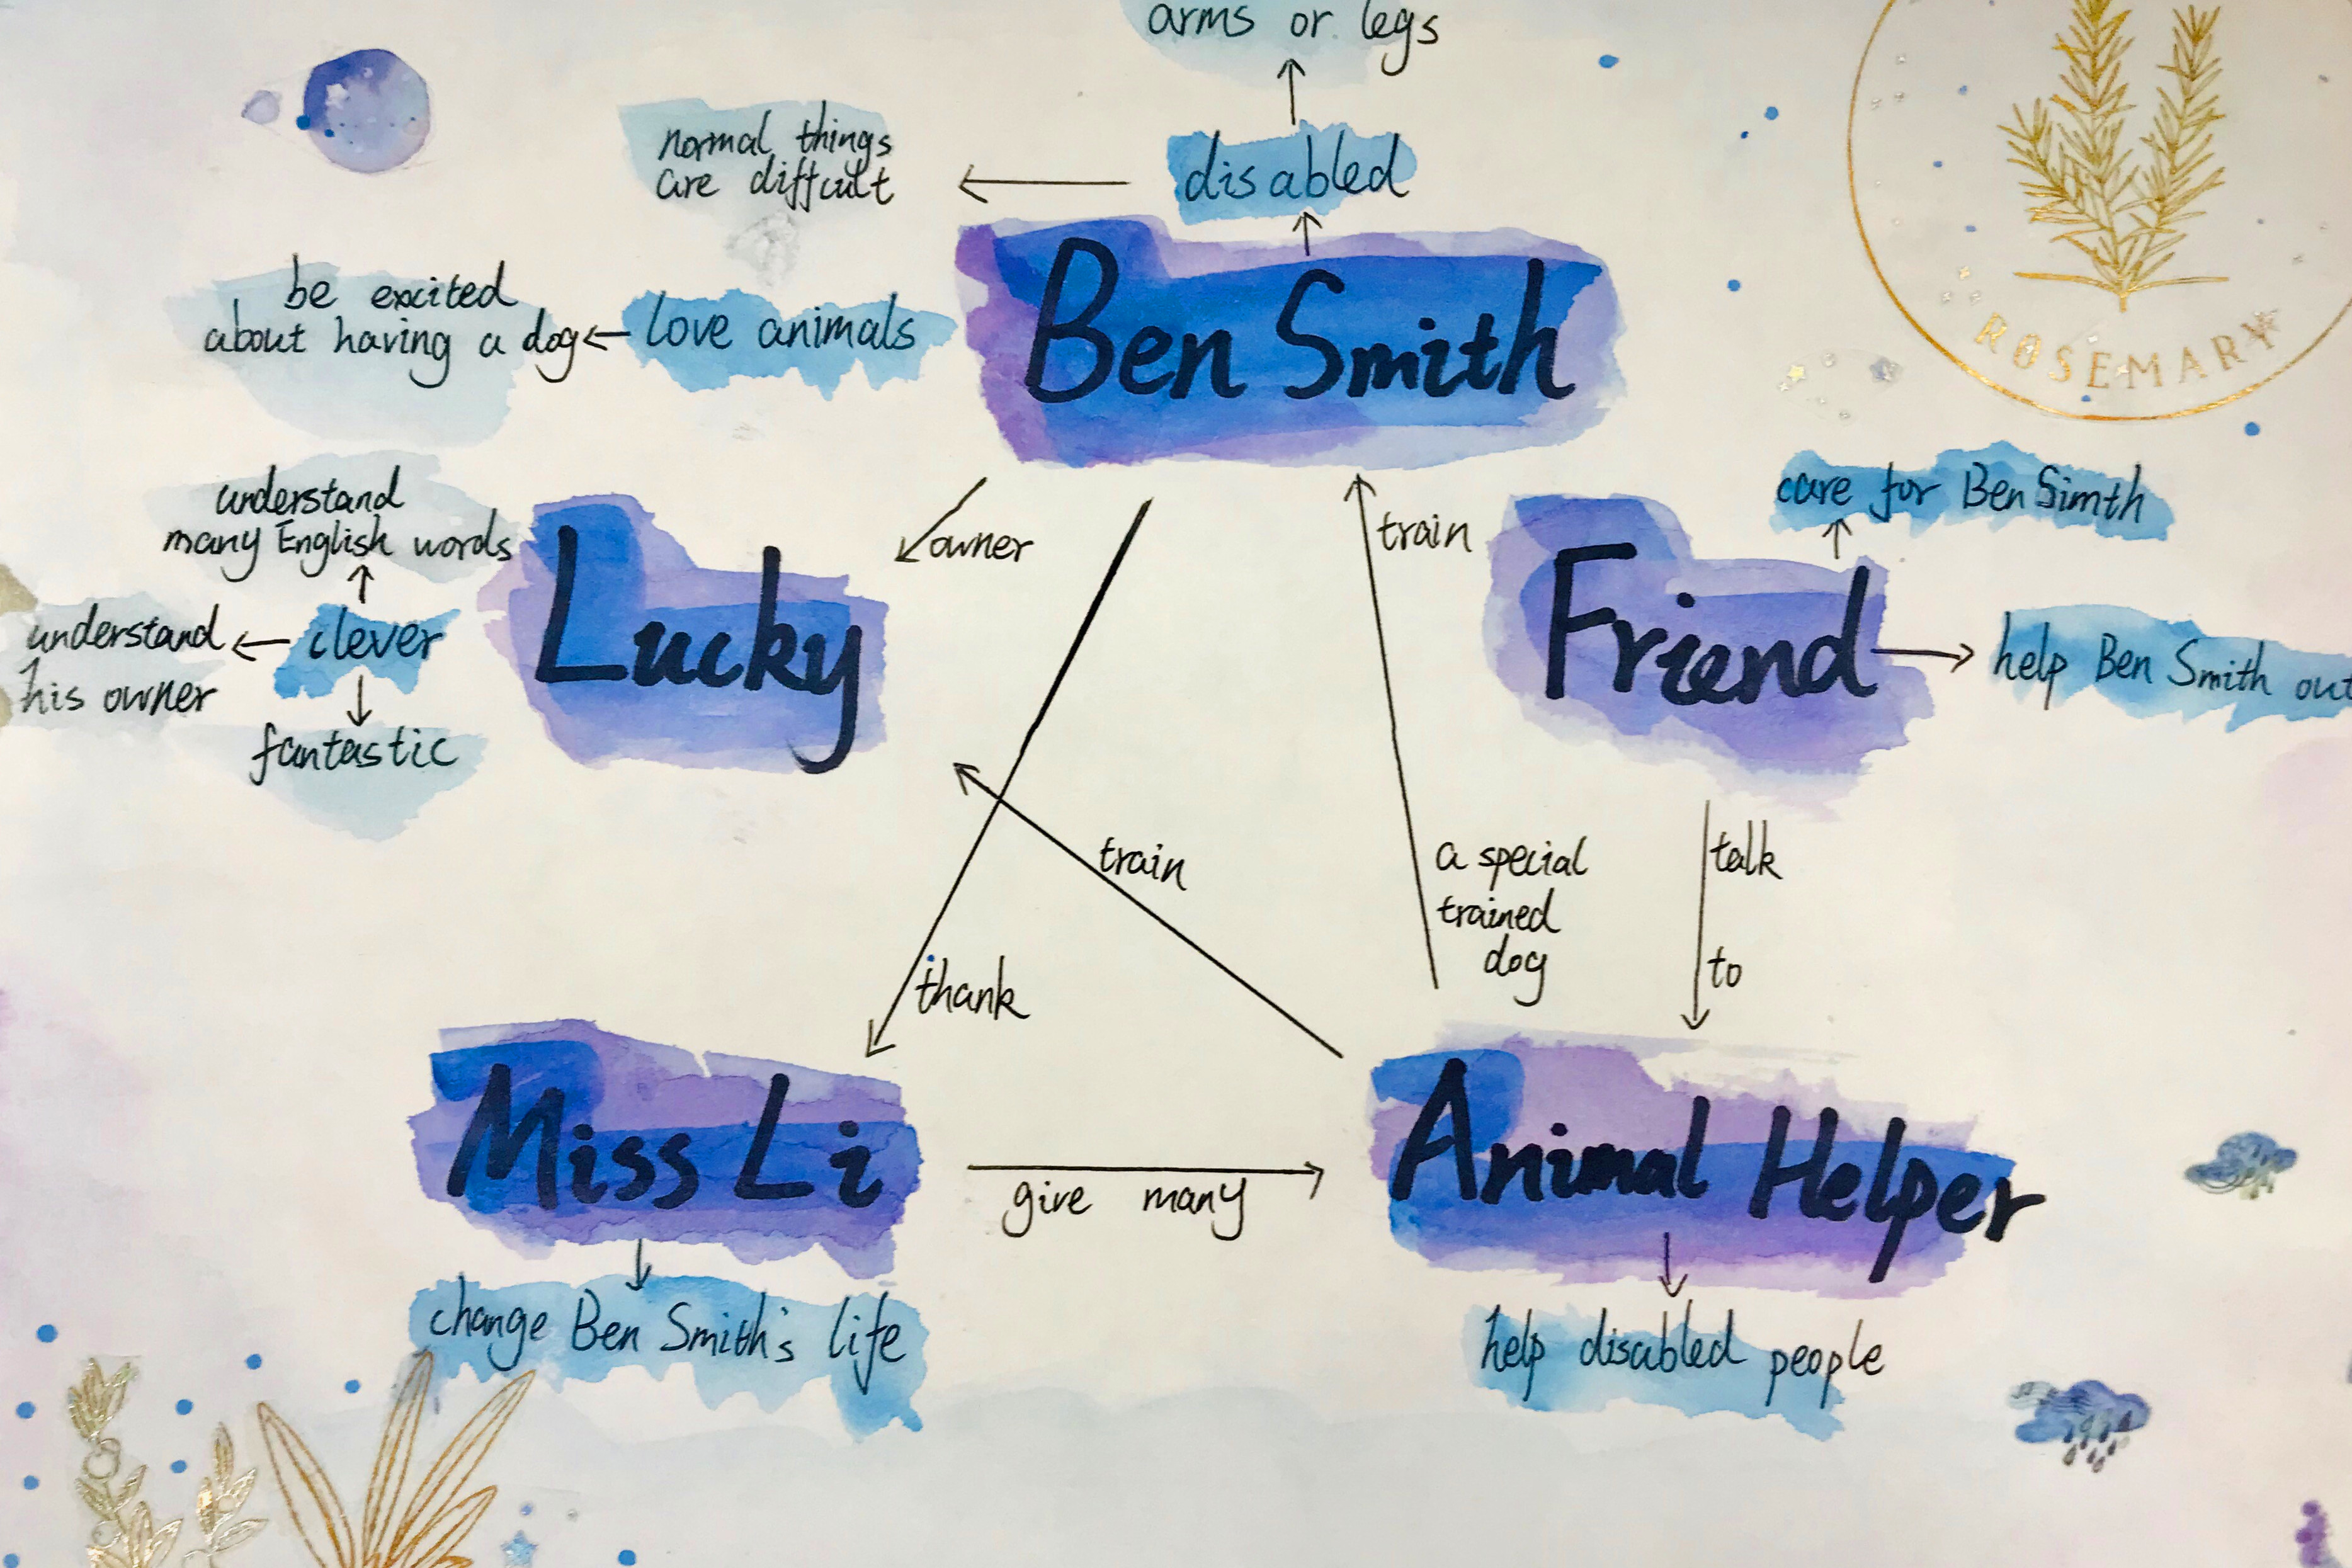 arms or legs
normal things
are diffcult
disabled
be excited
about having a dog
love animals
Ben Smith
ROSEMARY
understand
many English words
owner
train
care for Ben Simth
Lucky
Friend
understand
his owner
clever
help Ben Smith out
fantastic
train
a special
trained
dog
talk
to
thank
Miss Li
give many
Animal Helper
change Ben Smith's life
help disabled people